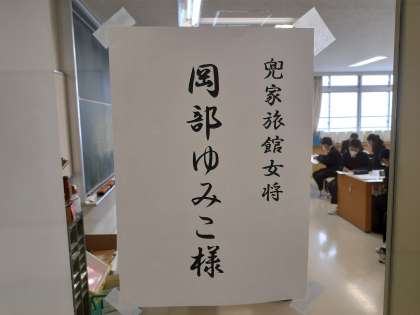 兜家旅館女将
岡部ゆみこ様